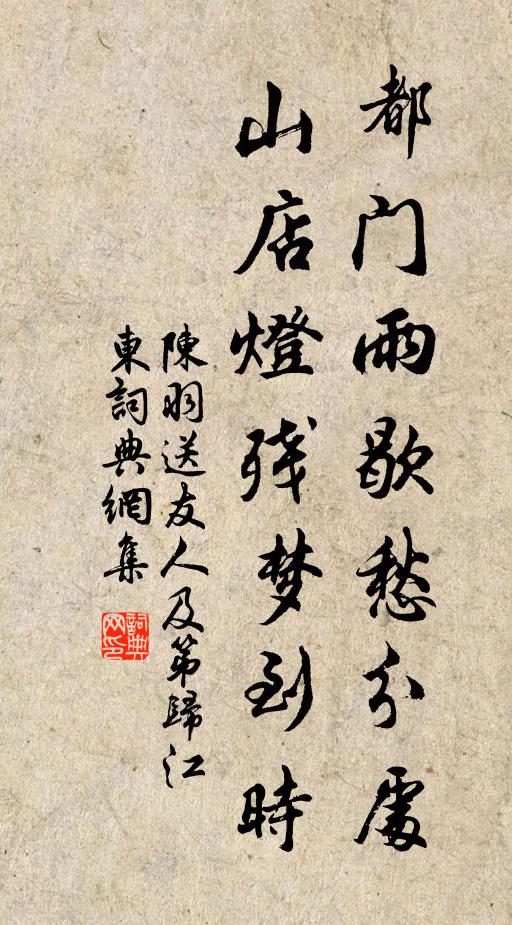 都门雨歇愁分處
山店燈残梦到時
陳羽送友人及第歸江
東詞典網集
詞典网印